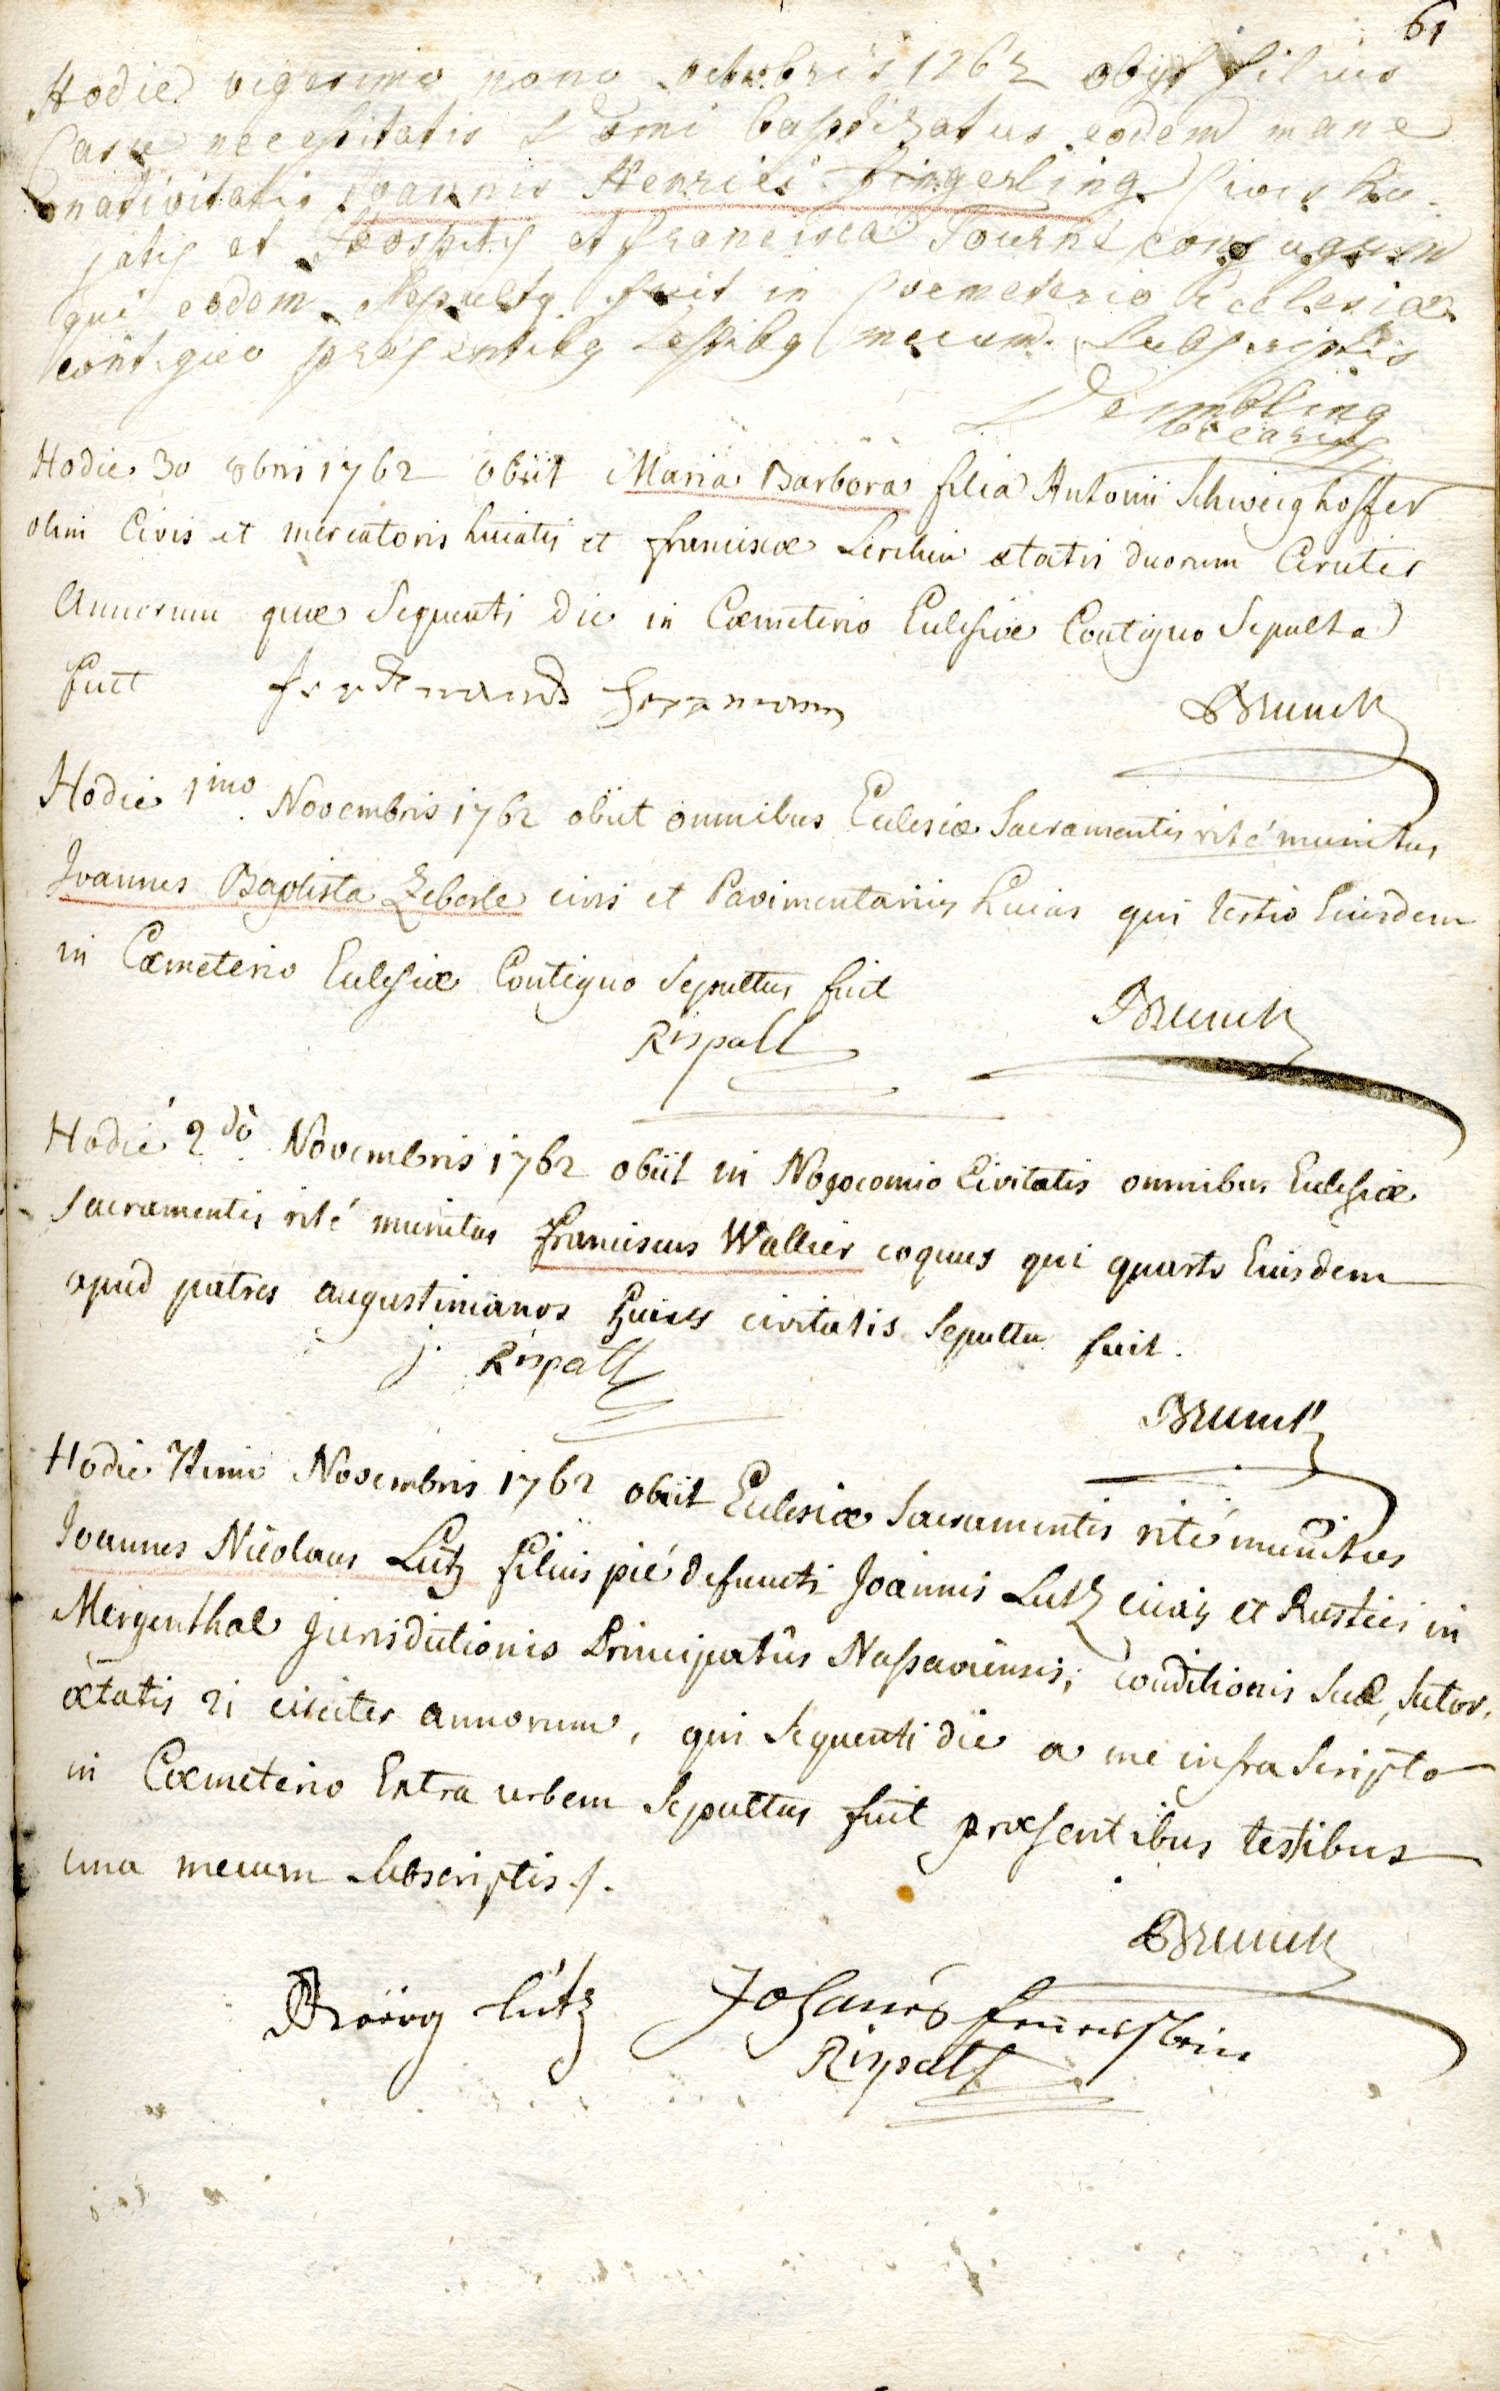 61
Hodie vigesimo nono octobris 1762 obyt filius
Casu necessitatis Domi baptizatus eodem mane
nativitatis Joannis Henrici fingerling Civis hu-
jatis et Hospitis et francisca conjugum
qui eodem Sepultq fuit in Coemeterio Ecclesiæ
contiguo præsentibq testibq mecum Subscriptis
Demdling
vicarius
Hodie 30 8bris 1762 obiit Maria Barbara filia Antonii Schweighoffer
olim Civis et mercatoris huiatis et franciscæ Lerchin ætatis duorum Circiter
Annorum quæ Sequenti die in Cæmeterio Ecclesiæ Contiguo Sepulta
fuit ferdinand Herrmann Brunck
Hodie 1mo Novembris 1762 obiit omnibus Ecclesiæ Sacramentis rité munitus
Joannes Baptista Zeberle civis et Pavimentarius huias qui tertio Eiusdem
in Cæmeterio Ecclesiæ Contiguo Sepultus fuit
Rispall Brunck
Hodie 2do Novembris 1762 obiit in Nosocomio Civitatis omnibus Ecclesiæ
Sacramentis rité munitus Franciscus Wallier coquus qui quarto Eiusdem
apud patres augustinianos huius civitatis Sepultu fuit.
j. Rispall
Brunck
Hodie Novembris 1762 obiit Ecclesiæ Sacramentis rité munitus
Joannes Nicolaus Lutz filius pié defuncti Joannis Lutz civis et Rustici in
Mergenthal Jurisdictionis Principatûs Nassaviensis, conditionis suæ, Sutor,
ætatis 21 circiter annorum, qui Sequenti die a me infra Scripto
in Cæmeterio Extra urbem Sepultus fuit præsentibus testibus
una mecum Subscriptis
Brunck
lütz Johanes
Rispall